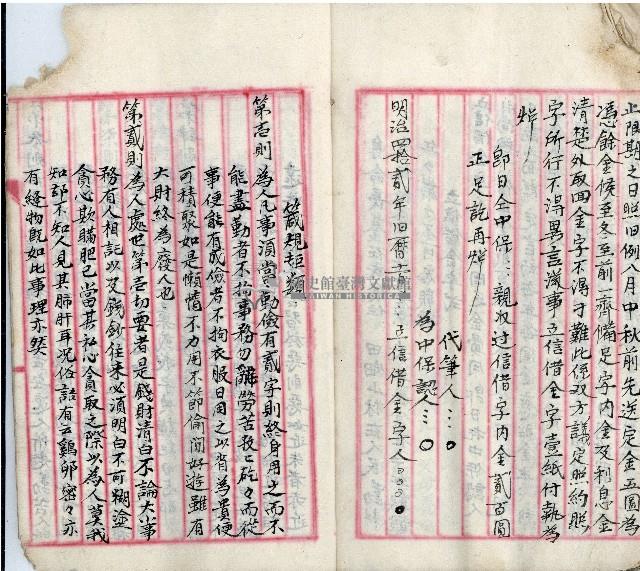 止限期之日照旧例八月中秋前先洗定金五圓為
憑餘金候至冬至前一齊備足字内金及利息金
清楚外取回金字不得刁難此係双方議定照約照
字所行不得異言滋事立信借金字壹紙付執為
炤
即日仝中保：：親收过信借字内金貳百圓
正足訖再炤
代筆人：：○
為中保認人：：○
明治四拾貳年旧曆　立信借金字人
箴規拒類
第壱則　為人凡事須當勤儉有貳字則終身用之而不
能盡勤者不拎事務勿雜勞苦孜孜矻々而從
事便能有成儉者不拘衣服日用之以省為貴便
可積聚如是懶惰不力用不節偷閒好遊雖有
大財終為之癈人也
第貳則　為人處世第壱切要者是錢財清白不論大小事
務有人相託以及錢鈔往来必須明白不可糊塗
貪心欺瞞肥己當其私心貪取之際以為人莫我
知即不知人見其肺肝耳况俗語有云鷄卵密々亦
有縫物既如此事理亦然
史館臺灣文獻館
TAIWAN HISTORICA